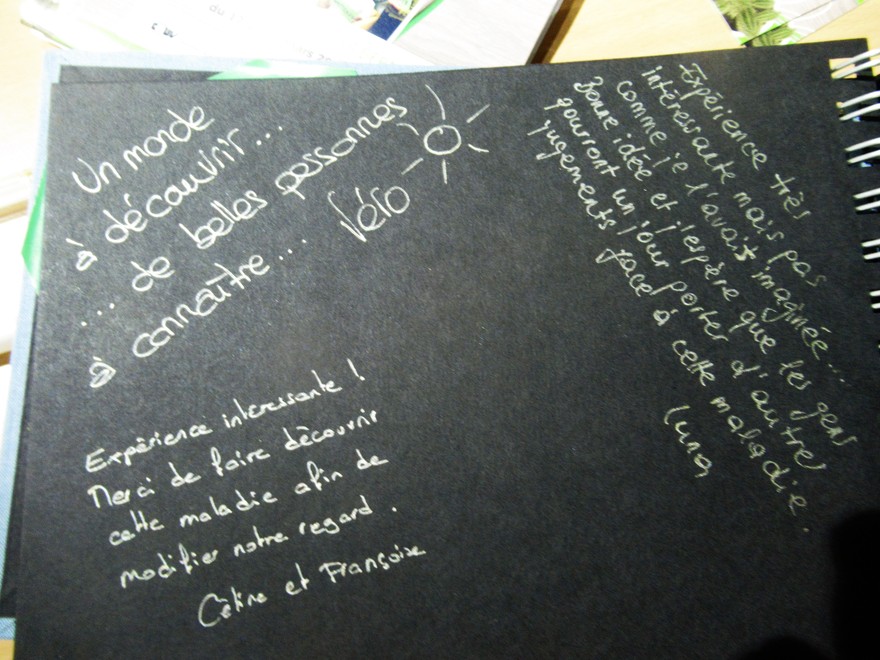 Un monde
à découvrir...
... de belles personnes
à connaître... Véro
Expérience intéressante !
Merci de faire découvrir
cette maladie afin de
modifier notre regard.
Céline et Françoise
Expérience très
intéressante mais pas
comme je l'avais imaginée...
Bonne idée et j'espère que les gens
pourront un jour porter d'autre
jugements face à cette maladie.
Luna